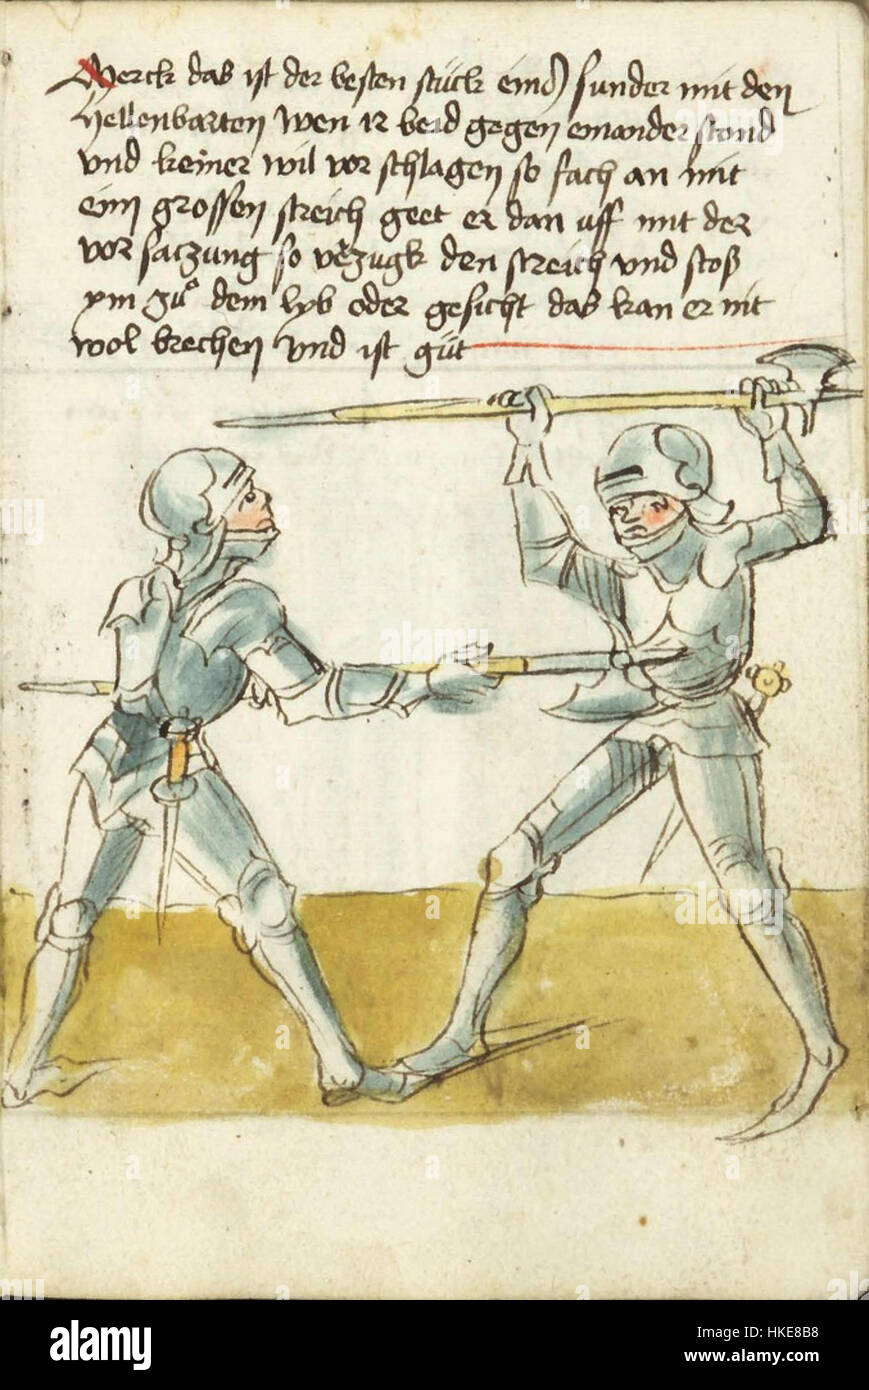 Merck das ist der besten stuck eins sunder mit den
hellenbarten wen ir beid gegen einander stond
vnd keiner wil vor schlagen so fach an mit
eim grossen streich geet er dan uff mit der
vor saczung so verzugk den streich vnd stoß
ym zů dem lyb oder gesicht das kan er nit
wol brechen vnd ist gůt
alamy
Image ID: HKE8B8
www.alamy.com